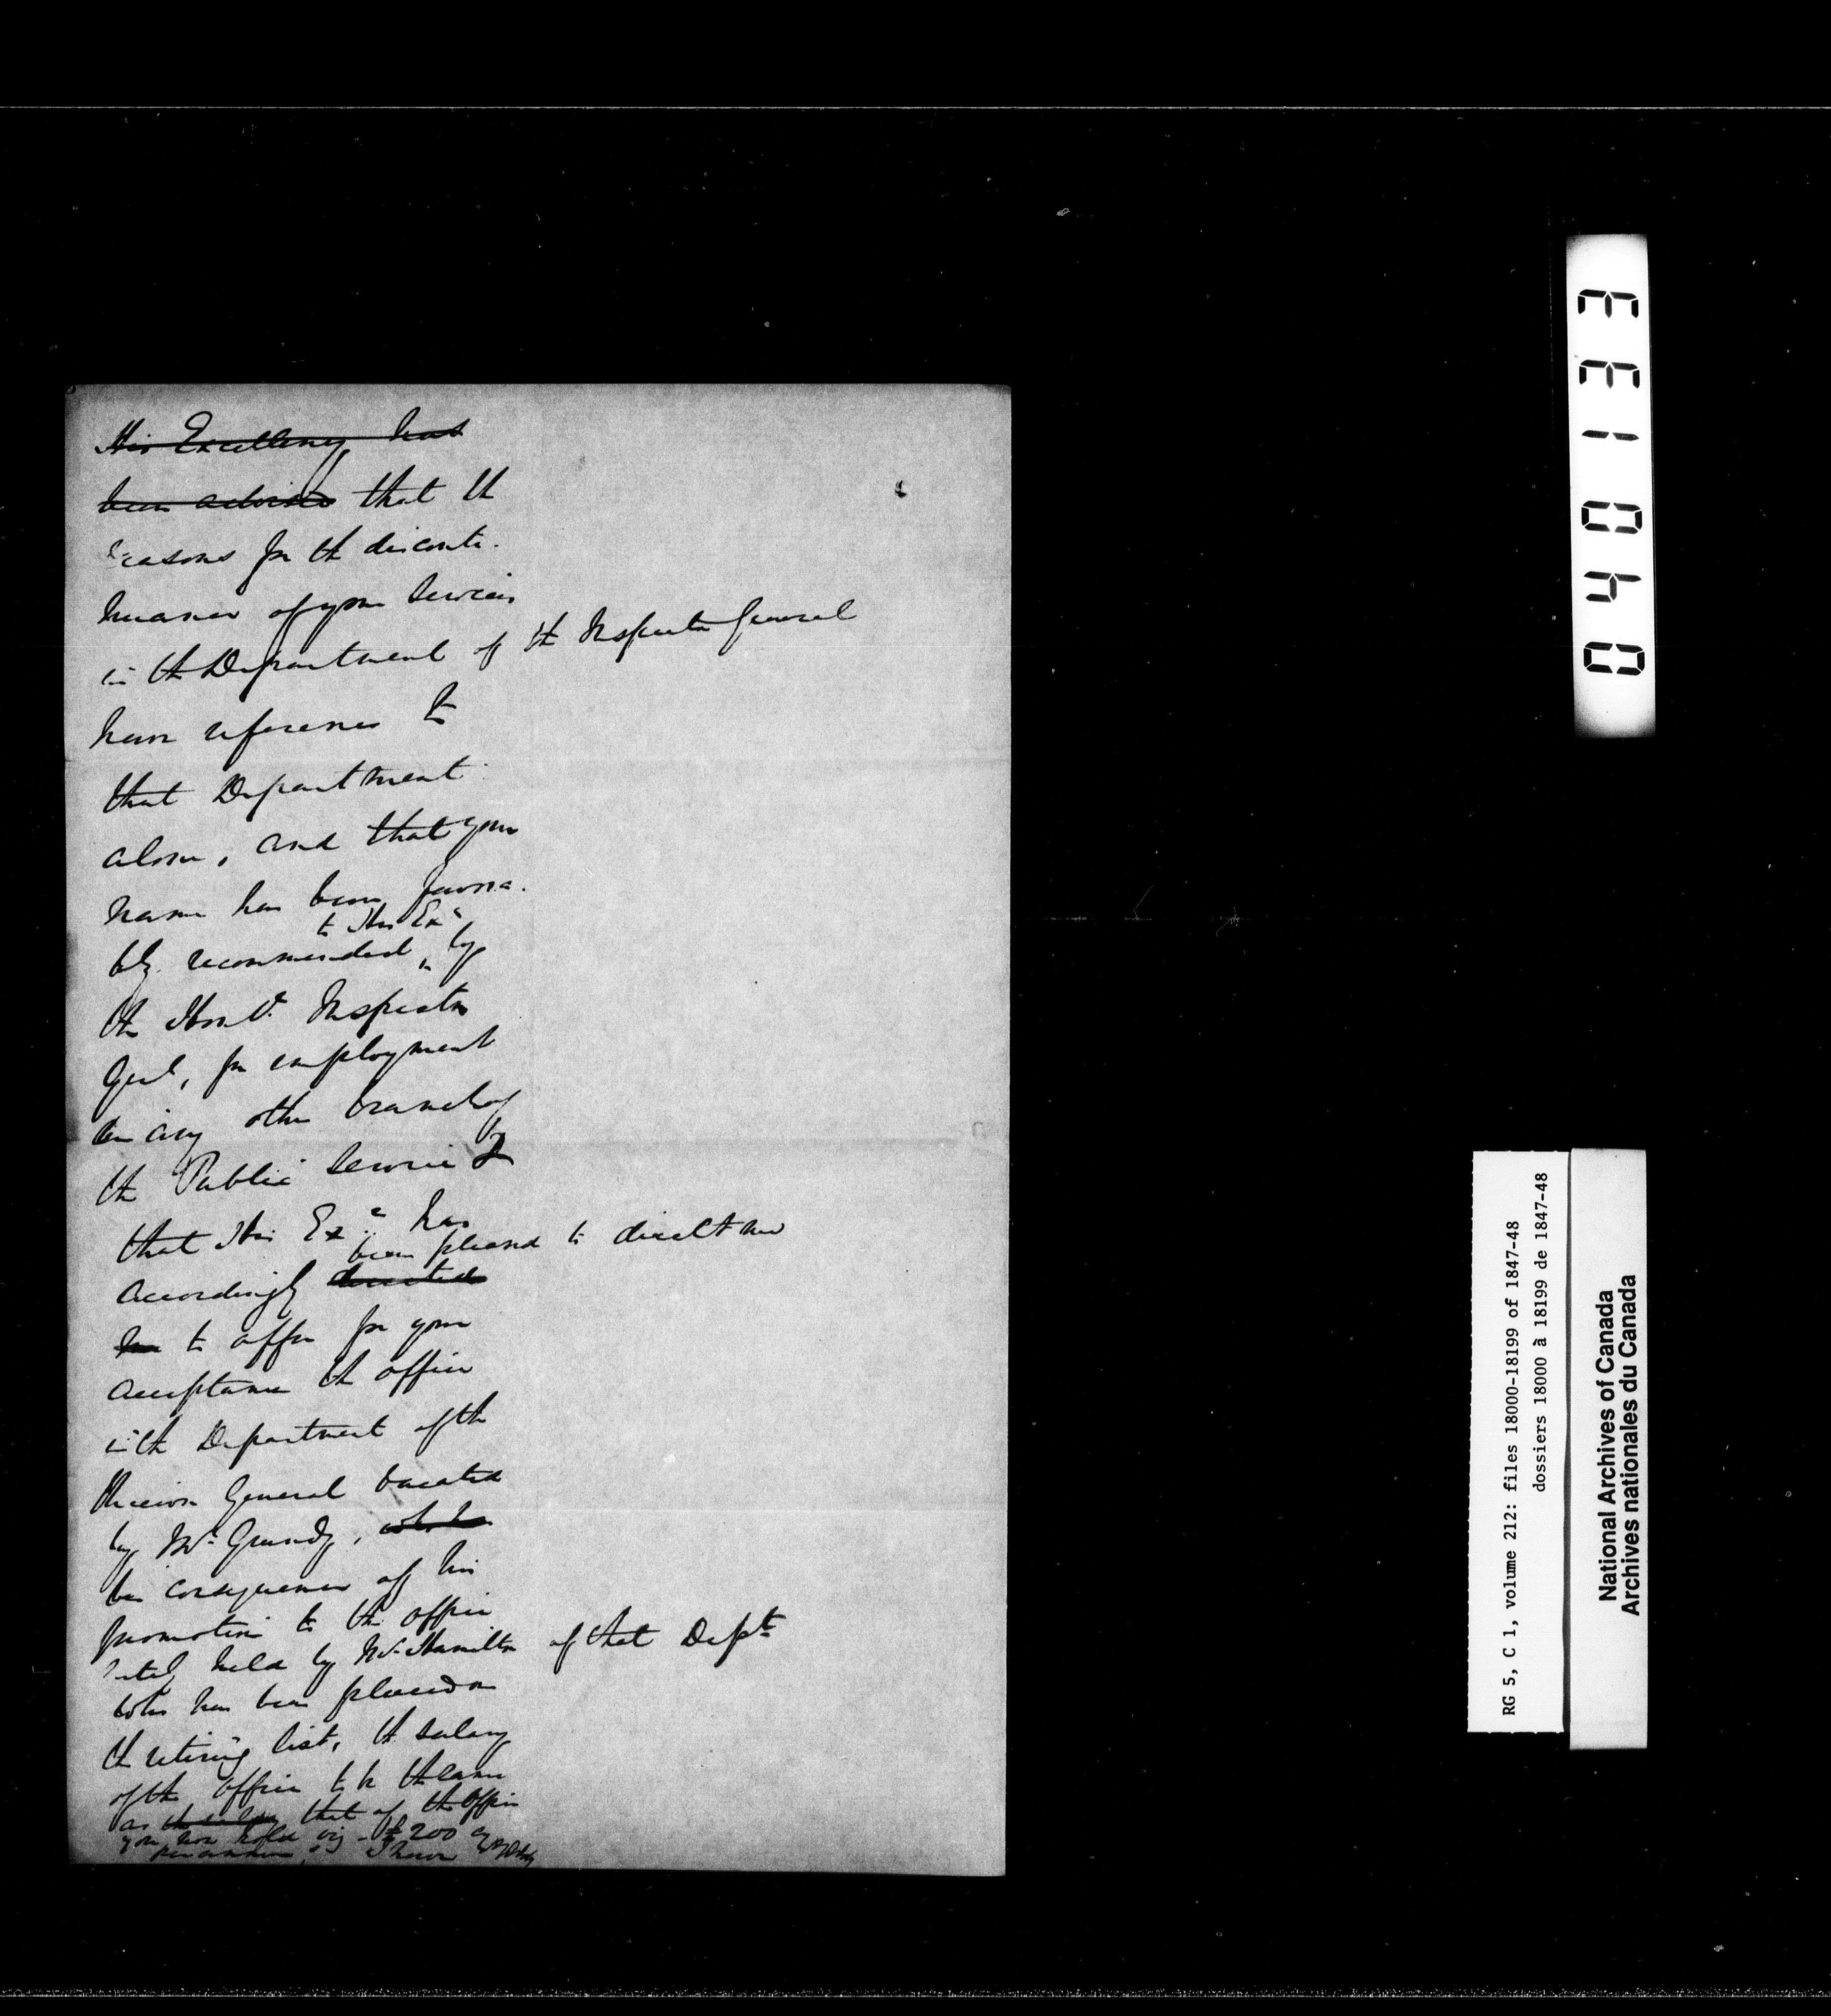 His Excellency has
been advised that the
reasons for the disconti-
nuance of your services
in the Department of the Inspector General
have reference to
that Department
alone, and that your
name has been favora-
to His Exy
bly recommended by
the Honble Inspector
Genl, for employment
in any other branch of
the Public Service &
that His Exy has
been pleased to direct me
accordingly directed
me to offer for your
acceptance the office
in the Department of the
Receiver General vacated
by Mr Grundy, who has
in consequence of his
promotion to the office
lately held by Mr Hamilton of that Dept
who has been placed on
the retiring list, the salary
of the office to be the same
as the salary that of the Office
you now hold viz - £200 cy
per annum, I have
04013 3
RG 5, C 1, volume 212: files 18000-18199 of 1847-48
dossiers 18000 à 18199 de 1847-48
National Archives of Canada
Archives nationales du Canada